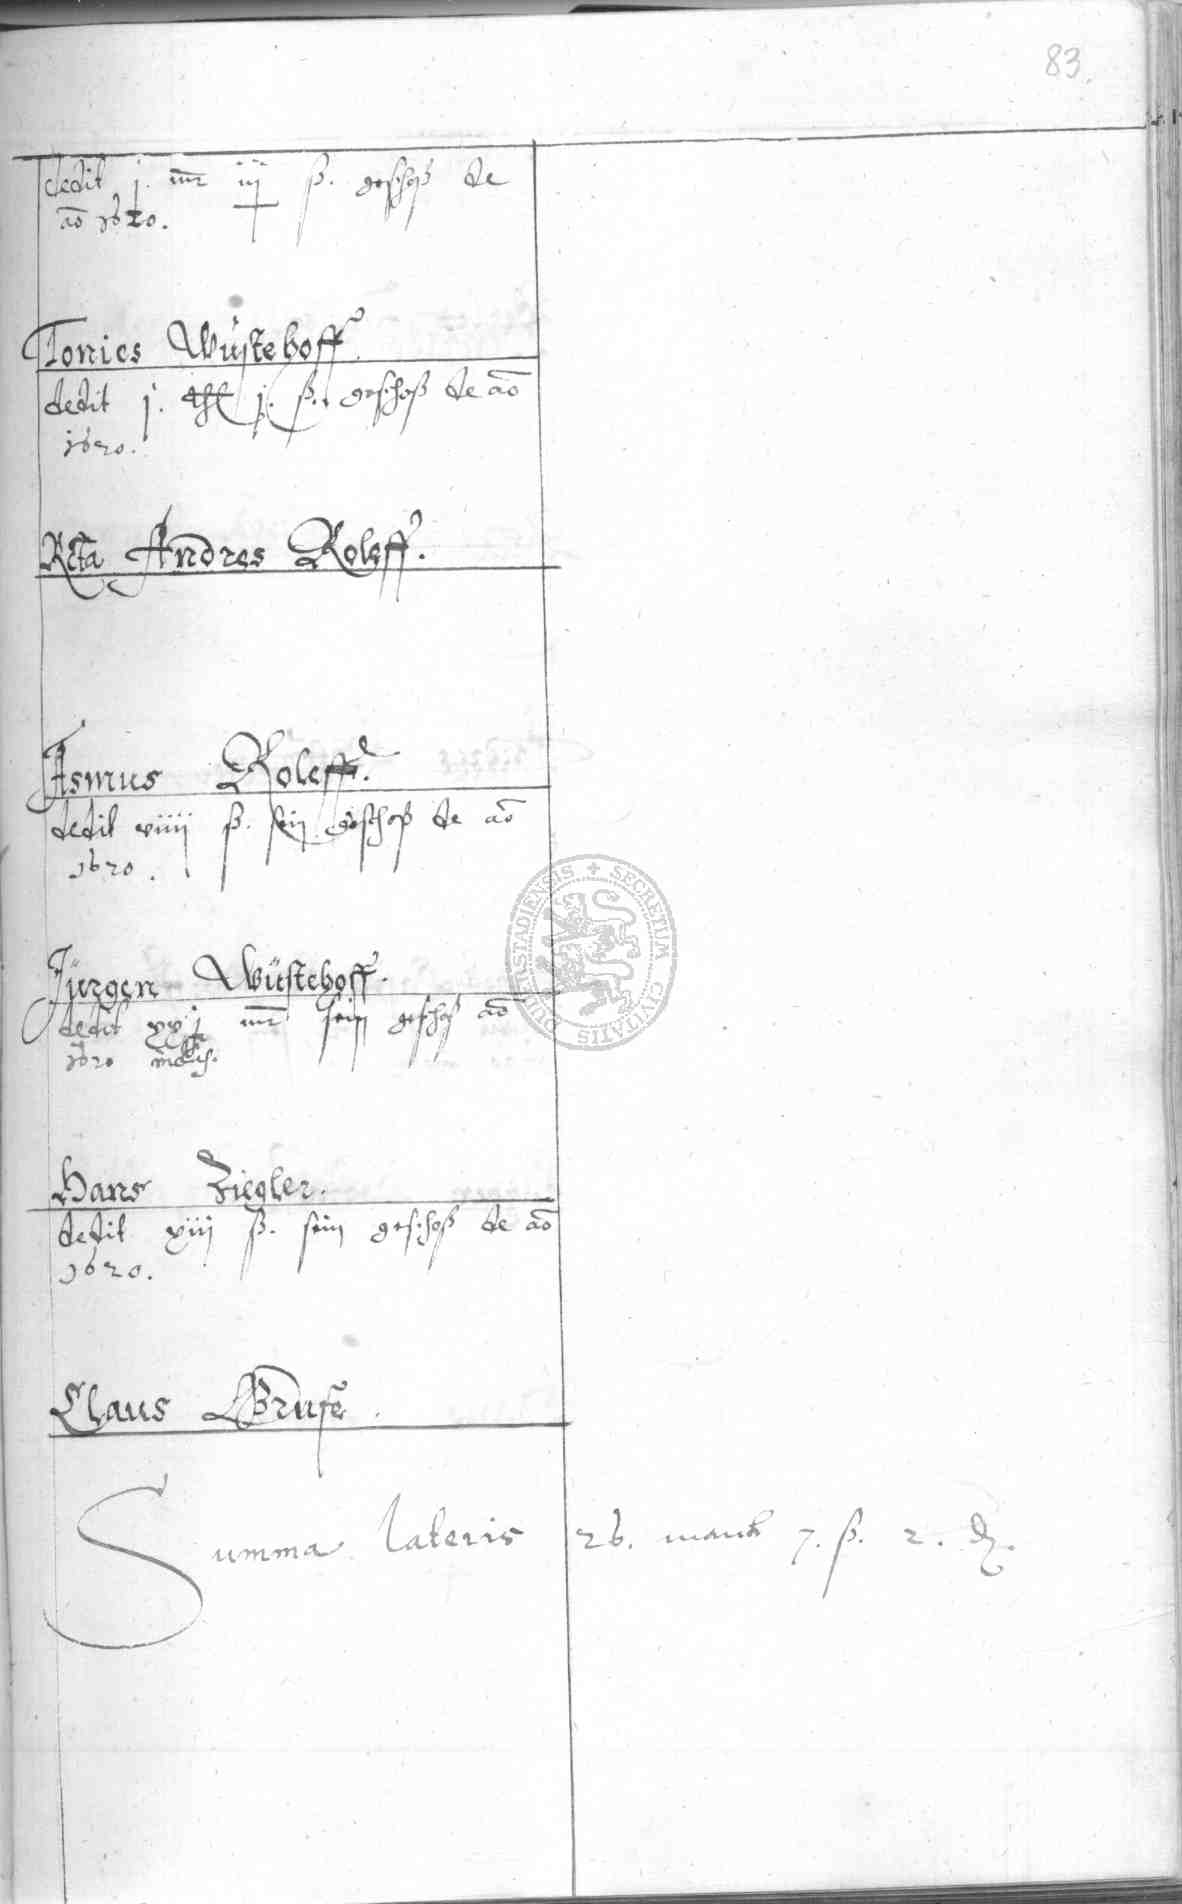 83
dedit j. mr iij ß. geschoß de
ao 1620.
Tonies Wüstehoff.
dedit j. thl j. ß. geschoß de ao
1620.
Rcta Andres Roleff.
Asmus Roleff.
dedit viiij ß. sein geschoß de ao
1620.
Jürgen Wüstehoff.
dedit xxj mr sein geschoß ao
1620
Hans Ziegler.
dedit xiij ß. sein geschoß de ao
1620.
Claus Gruse.
Summa lateris 26. marck 7. ß. 2. d.
SECRETUM CIVITATIS DUDERSTADIENSIS